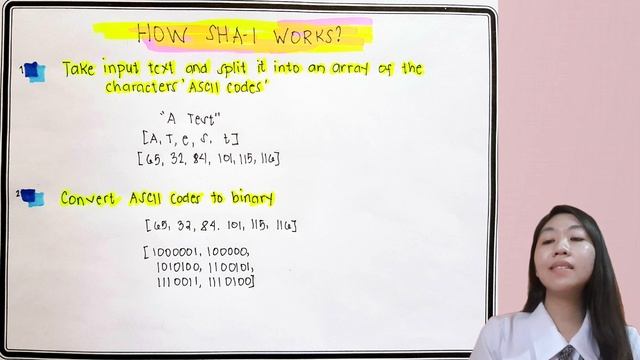 HOW SHA-1 WORKS?
1 Take input text and split it into an array of the
characters' ASCII codes'
"A Test"
[A, T, e, s, t]
[65, 32, 84, 101, 115, 116]
2 Convert ASCII codes to binary
[65, 32, 84. 101, 115, 116]
[1000001, 100000,
1010100, 1100101,
1110011, 1110100]